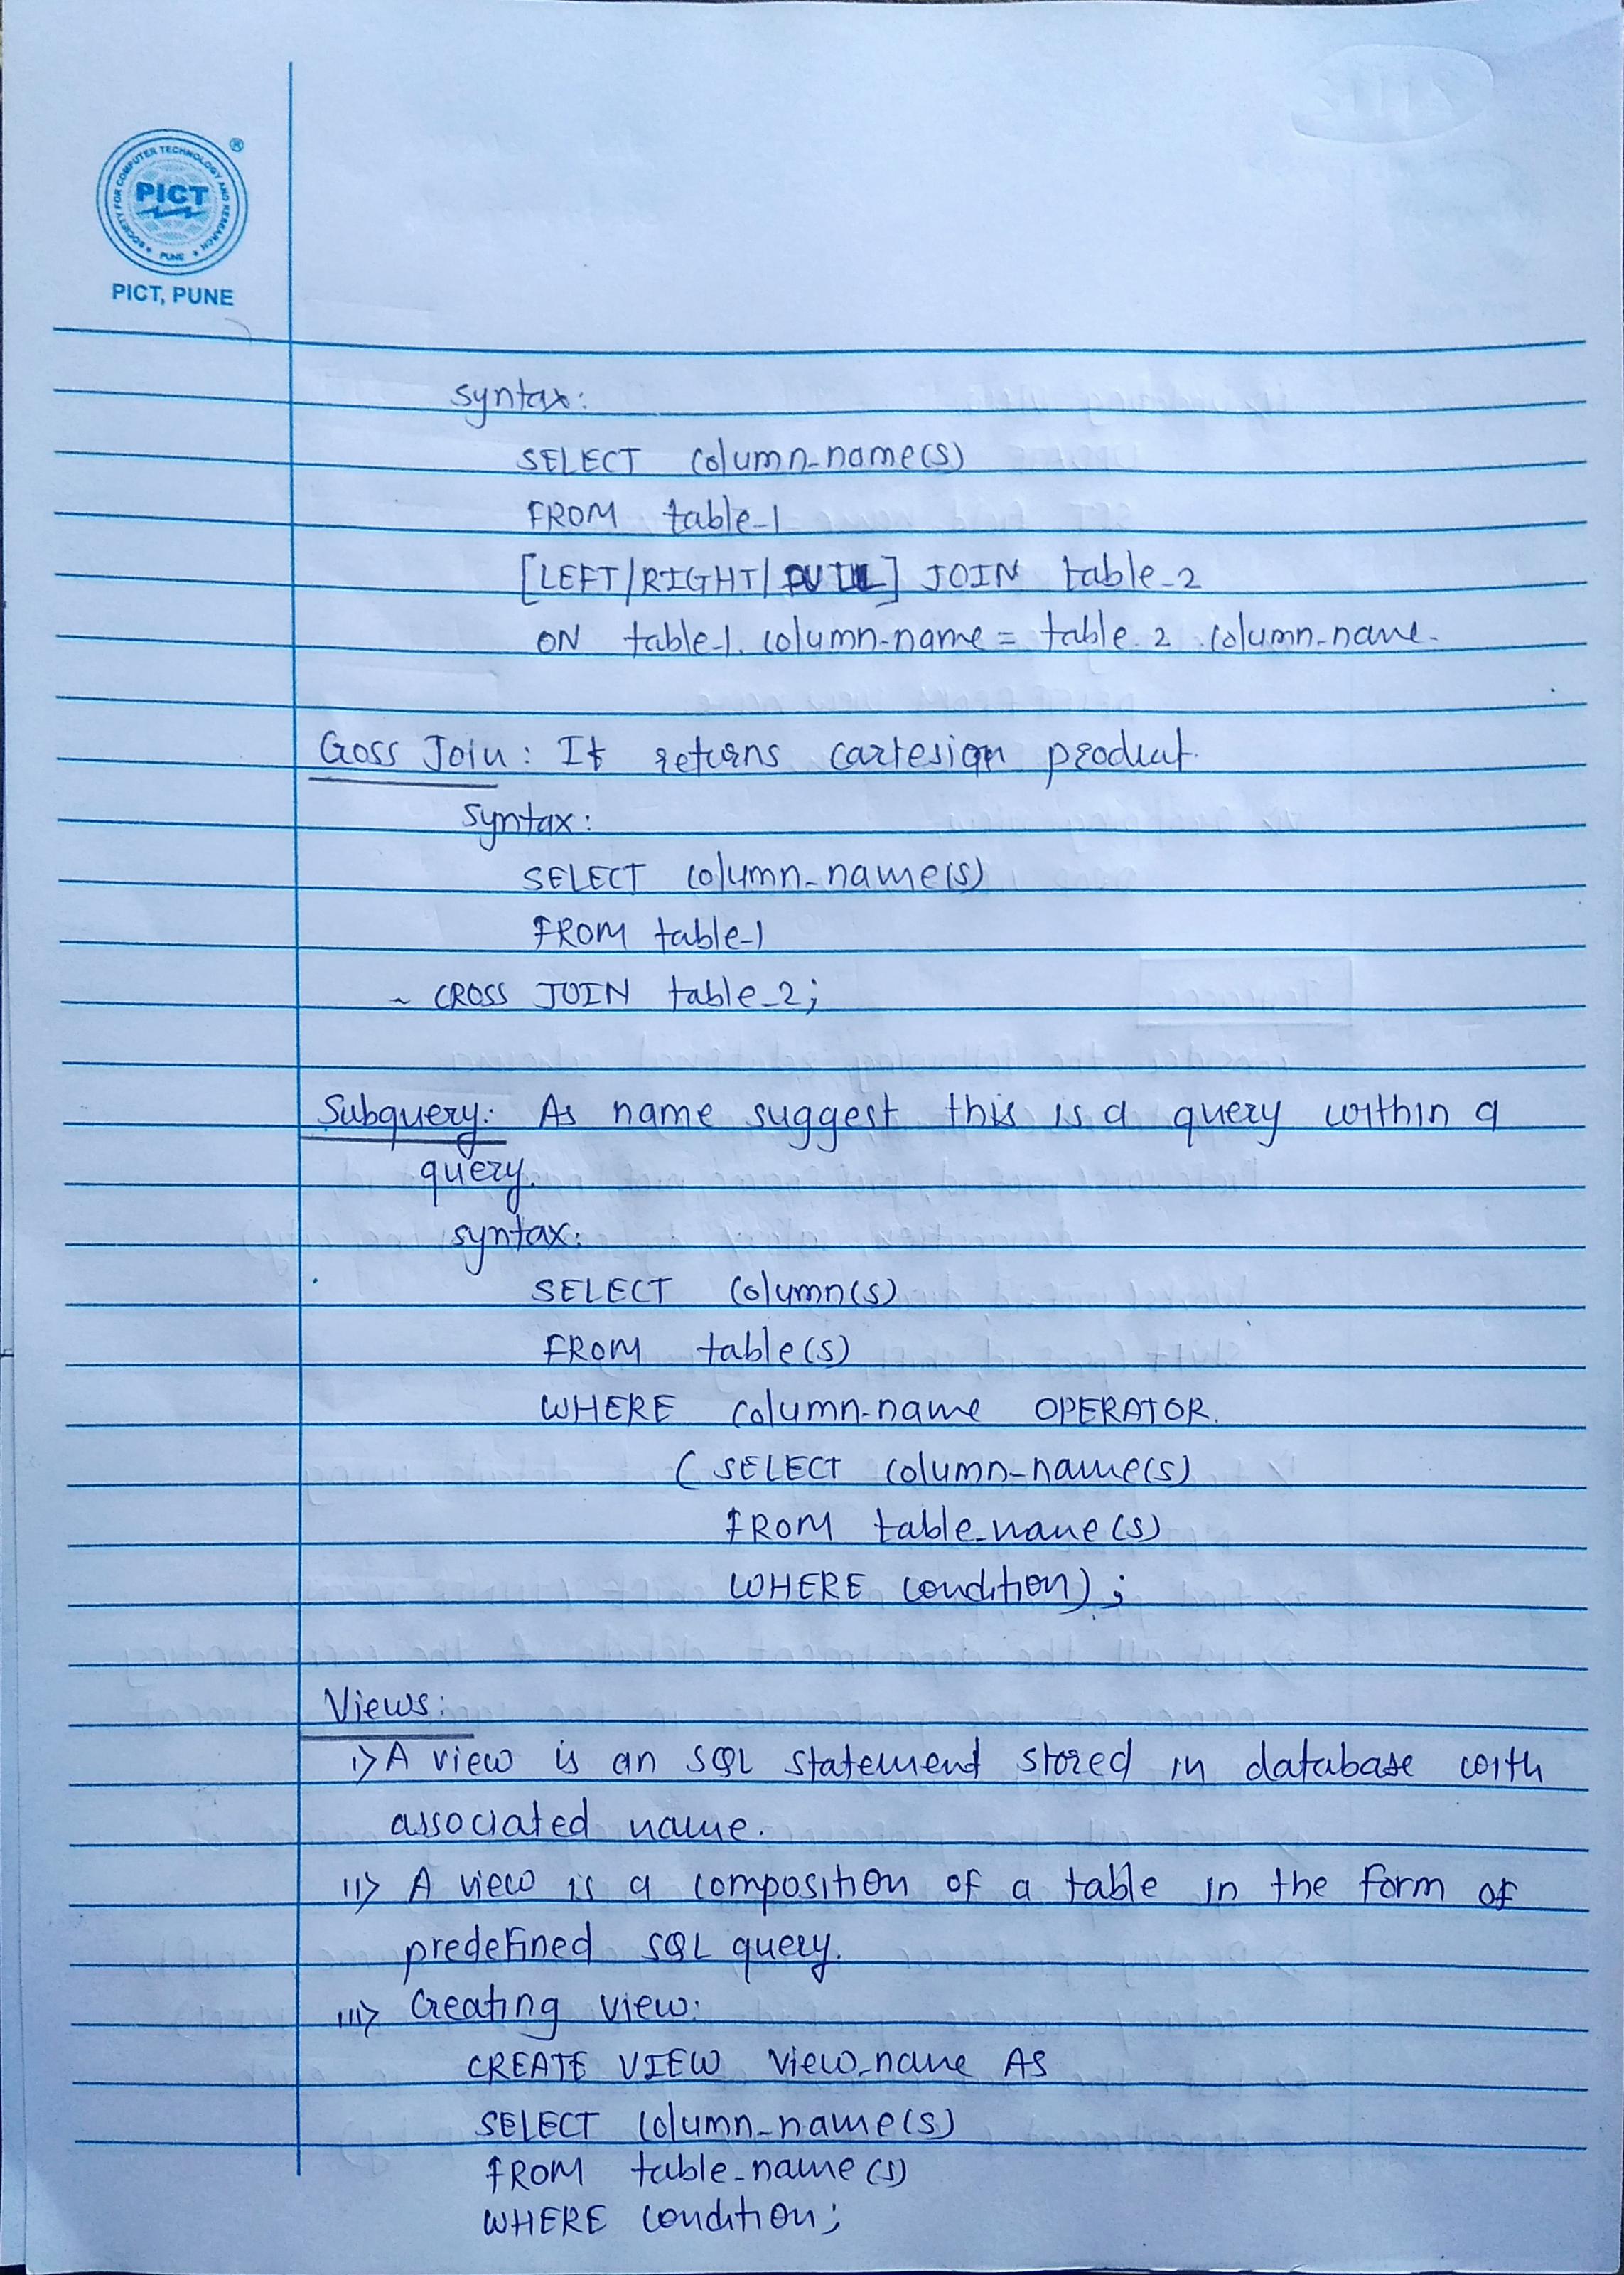 SOCIETY FOR COMPUTER TECHNOLOGY AND RESEARCH
PICT
PUNE
®
PICT, PUNE
syntax:
SELECT column_name(s)
FROM table_1
[LEFT/RIGHT/FULL] JOIN table_2
ON table_1. column_name = table_2 .column_name.
Cross Join : It returns cartesian product
syntax:
SELECT column_name(s)
FROM table_1
~ CROSS JOIN table_2;
Subquery: As name suggest this is a query within a
query.
syntax:
SELECT column(s)
FROM table(s)
WHERE column_name OPERATOR.
( SELECT column_name(s)
FROM table_name(s)
WHERE condition);
Views:
i> A view is an SQL statement stored in database with
associated name.
ii> A view is a composition of a table in the form of
predefined SQL query.
iii> Creating view:
CREATE VIEW view_name AS
SELECT column_name(s)
FROM table_name(s)
WHERE condition;